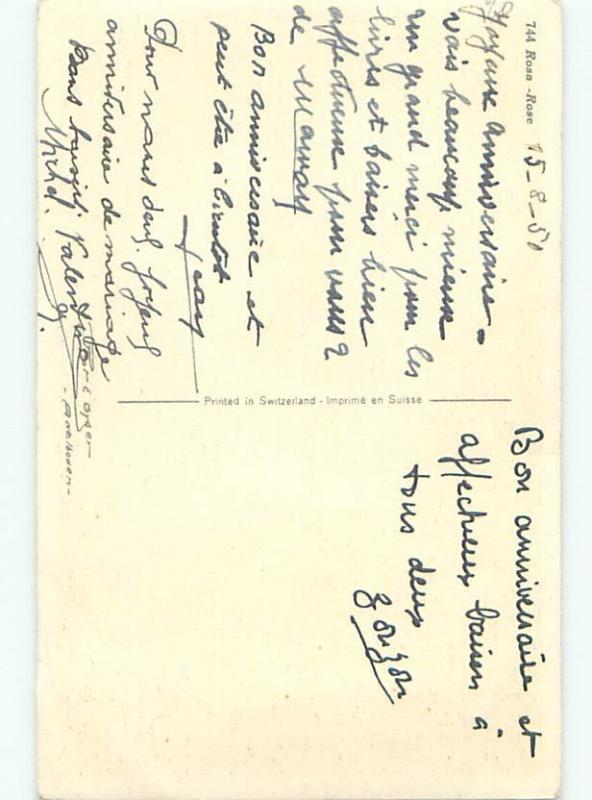 744 Rosa - Rose
15-8-50
Joyeux anniversaire -
vais beaucoup mieux
un grand merci pour les
livres et baisers bien
affectueux pour vous 2
de Maman
Bon anniversaire et
peut être à bientôt
Jean
Pour vous deux joyeux
anniversaire de mariage
Bons baisers
Michel.
Printed in Switzerland - Imprimé en Suisse
Bon anniversaire et
affectueux baisers à
tous deux
Zonzon